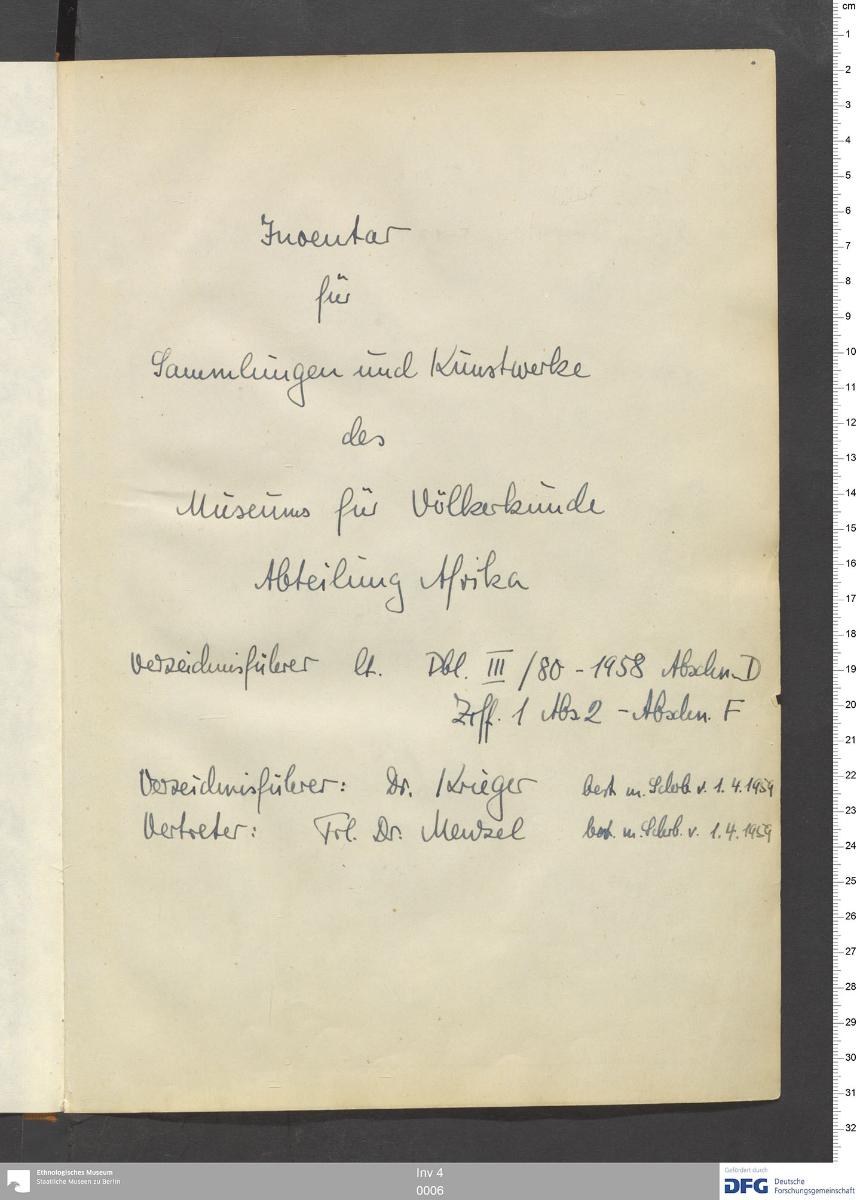 Inventar
für
Sammlungen und Kunstwerke
des
Museums für Völkerkunde
Abteilung Afrika
Verzeichnisführer lt. Dbl. III/80 - 1958 Abschn. D
Ziff. 1 Abs 2 - Abschn. F
Verzeichnisführer: Dr. Krieger best. m. Schrb. v. 1.4.1959
Vertreter: Frl. Dr. Menzel best. m. Schrb. v. 1.4.1959
cm
1
2
3
4
5
6
7
8
9
10
11
12
13
14
15
16
17
18
19
20
21
22
23
24
25
26
27
28
29
30
31
32
Ethnologisches Museum
Staatliche Museen zu Berlin
Inv 4
0006
Gefördert durch
DFG Deutsche
Forschungsgemeinschaft